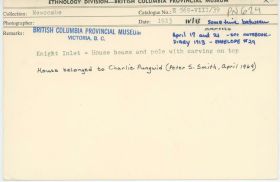 ETHNOLOGY DIVISION—BRITISH COLUMBIA PROVINCIAL MUSEUM
Collection: Newcombe Catalogue No. E 565-VIII/39 PN 624
Date: 1913 IV/13 Sometime between
Remarks: April 17 and 21 - see NOTEBOOK
BRITISH COLUMBIA PROVINCIAL MUSEUM
VICTORIA, B. C.
DIARY 1913 - ENVELOPE #29
Knight Inlet - House beams and pole with carving on top
House belonged to Charlie (Peter S. Smith, April 1969)